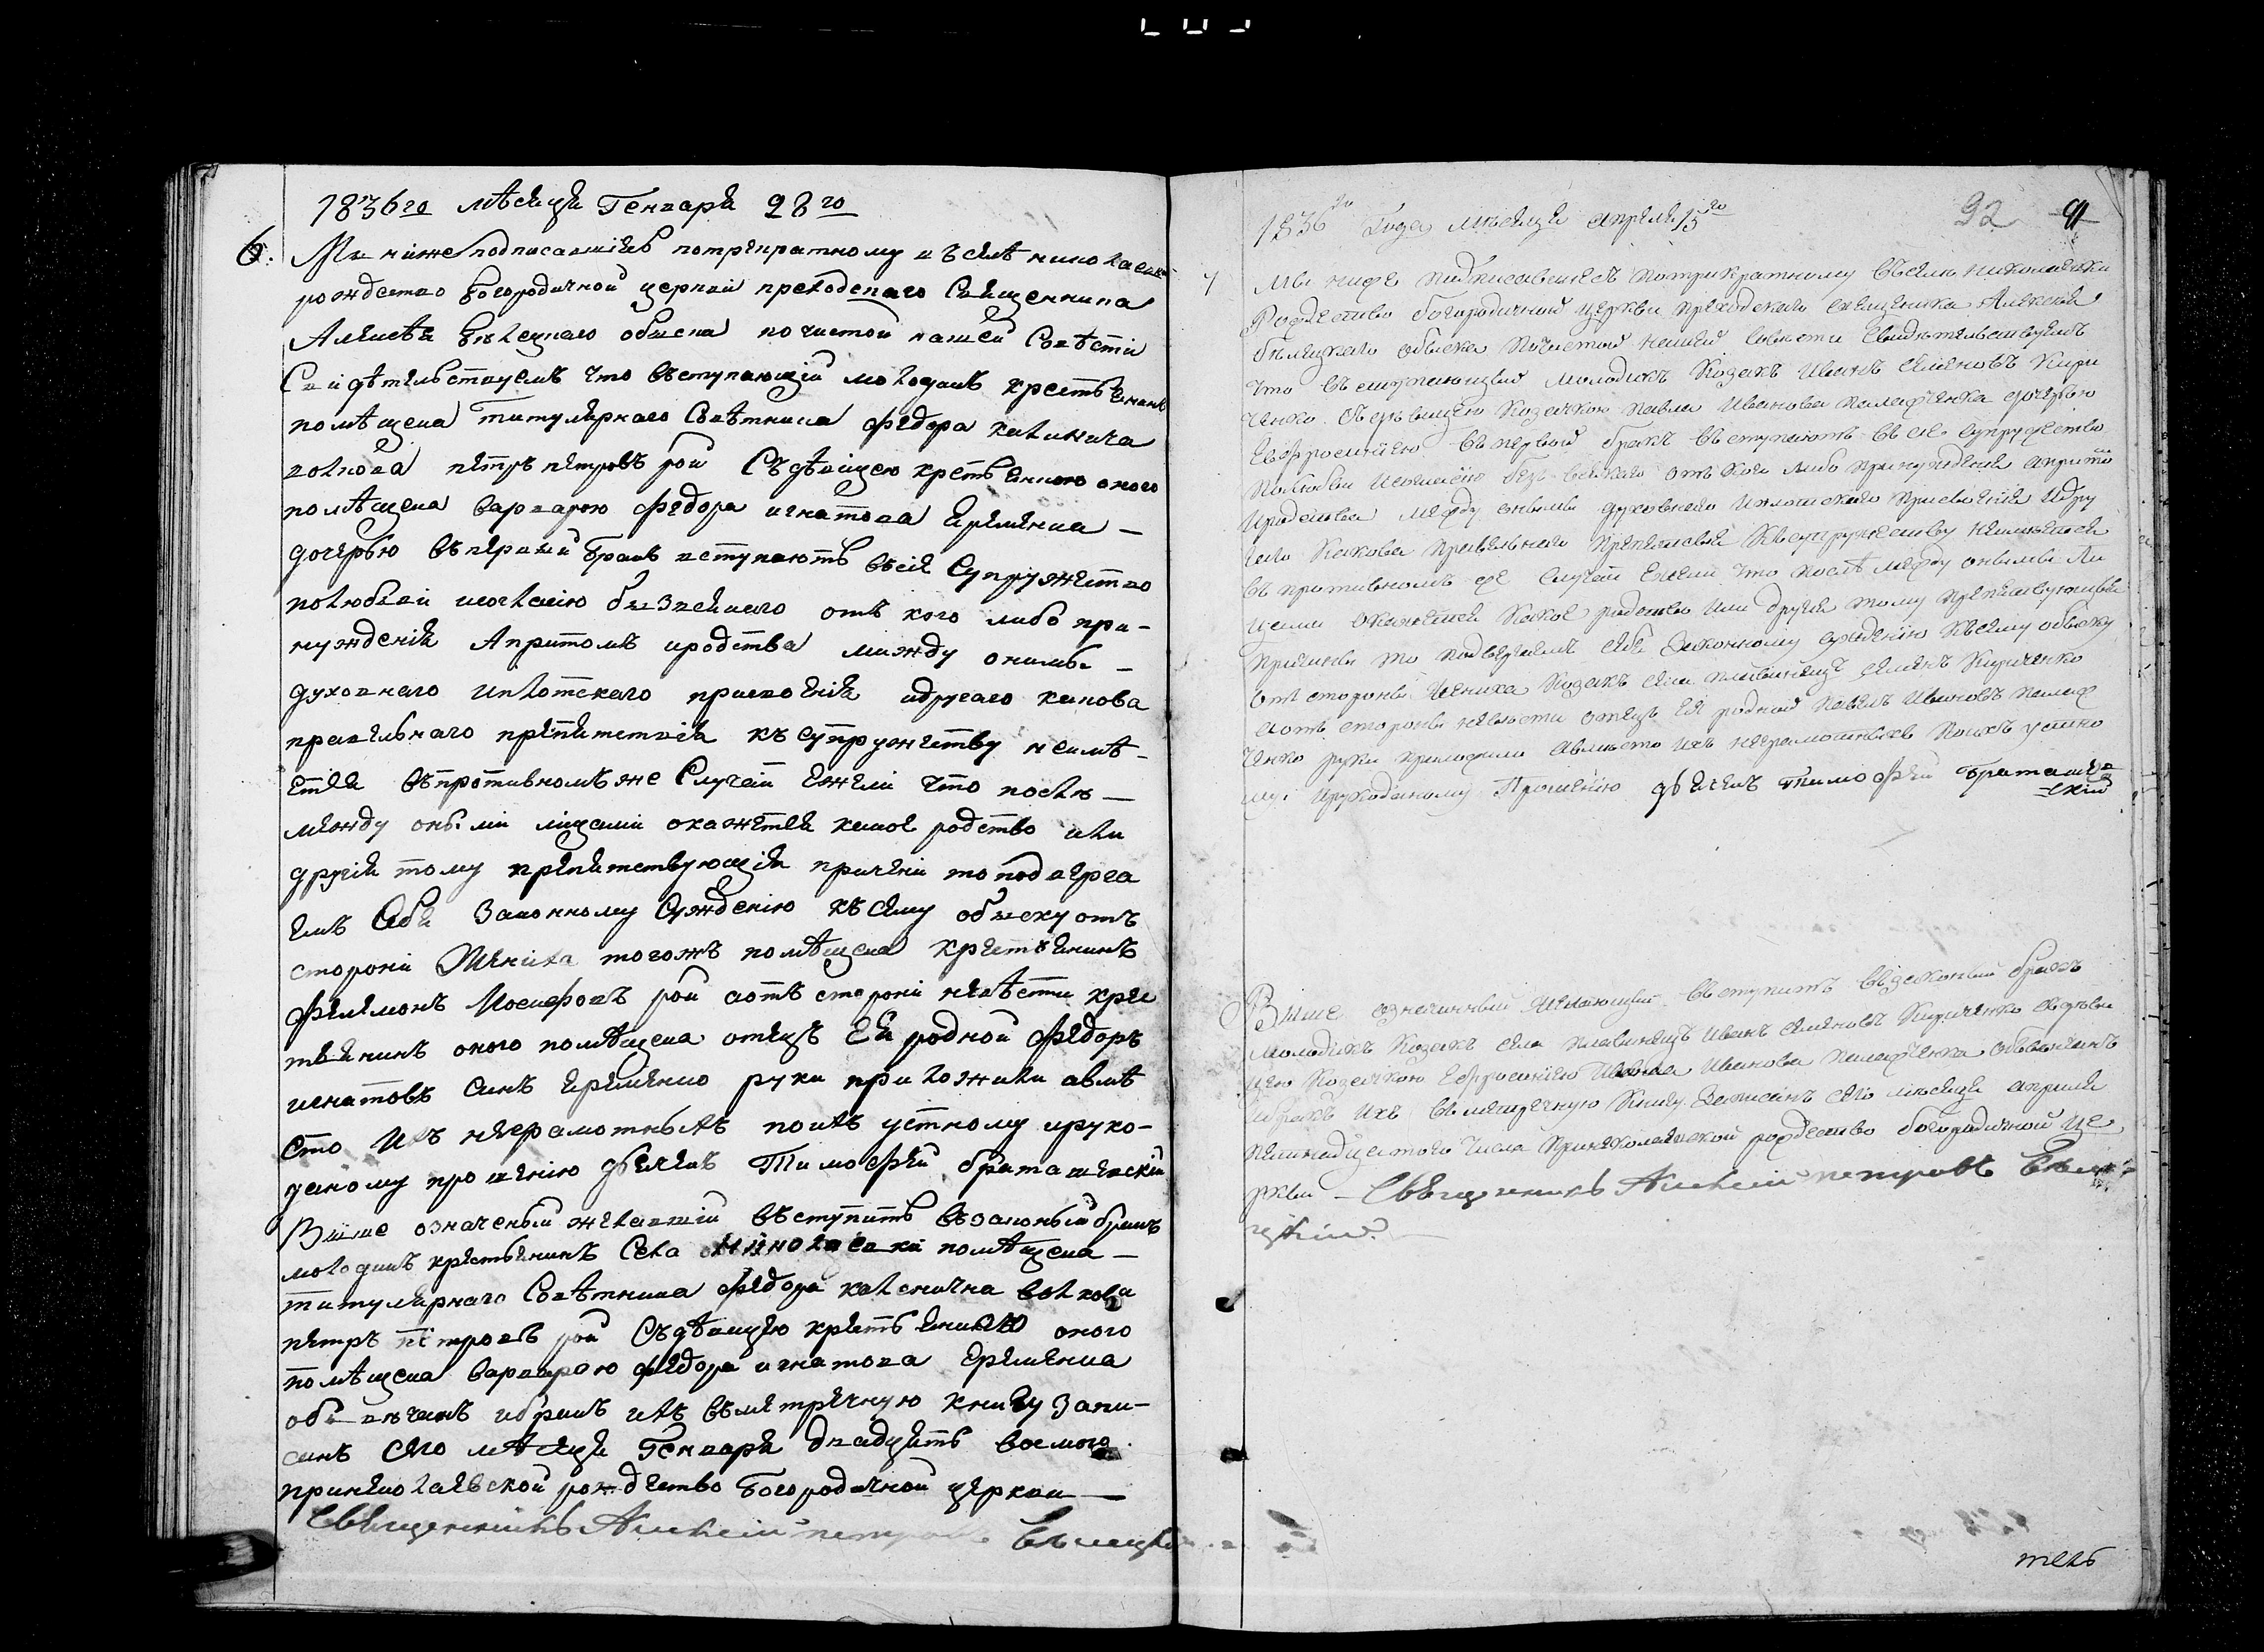 1836го мѣсяця Генваря 28го
6. Ми ниже подписавшіесь потрекратному въ селѣ николаевки
рождество богородичной церкви преходскаго Священника
Алексѣя Бѣлецкаго обыска по чистой нашей Совѣсти
Свидѣтельствуемъ что въступающій молодикъ крестьянинъ
помѣщека титулярнаго Совѣтника федора
волкова петръ петровъ рой Съдѣвицею крестьянкою оного
помѣщека варварою федора игнатова Еременка —
дочерью въпервый бракъ вступаютъ всіе Супружество
полюбви исогласію безвсякаго отъ кого либо при-
нужденія Апритомъ иродства мижду онимы —
духовнаго иплотскаго присвоенія идругаго какова
правильнаго препятствія къ супружеству неимѣ-
ется въпротивномъ же Случаи ежели что послѣ —
между оными лицами окажется какое родство или
другія тому препятствующія причени то подверга
емъ Себя Законному Сужденію къ сему обыску отъ
стороны Жениха тогожъ помѣщека крестьянинъ
филимонъ Иосифовъ рой аотъ стороны невѣсти крес
тьянинъ оного помѣщека отецъ Ея родной федоръ
игнатовъ синъ еременко руки приложили авмѣ
сто ихъ неграмотныхъ поихъ устному ируко-
даному прошенію дьячекъ Тимофей браташевскій
Више означеный желающій въступить взаконый бракъ
молодикъ крестьянинъ Села Николаевки помѣщека —
титулярнаго Совѣтника федора волкова
петръ петровъ рой Съдѣвицею крестьянкою оного
помѣщека варварою федора игнатова Еременка
обвѣнчанъ ибракъ ихъ въметричную книгу запи-
санъ сего мѣсяця Генваря двадцять восмого
приниколаевской рождество Богородичной церкви —
Священникъ Алексій петровъ Бѣлецкій
1836го Года мѣсяця апреля 15го
92 91
7 Мы ниже подписавшіесь потрикратному въселѣ николаевки
Рождество богородичной церкви преходскаго священика Алексѣя
бѣлецкаго обыска почистой нашей совѣсти свидѣтельствуемъ
что въступающый молодикъ Козакъ Иванъ семеновъ Кири
ченко съдѣвицею Козачкою павла Иванова дочерью
Евфросиніею въпервой бракъ въступаютъ въ сіе супружество
полюбви исогласію безъ всякаго отъ кого либо принужденія апритомъ
иродства между онымы духовнаго иплотскаго присвоенія идру
гаго какова правильнаго препятствія къ супружеству неимѣется
въ противномъ же случаи ежели что послѣ между онымы ли
цами окажется какое родство или другія тому препятствующые
причины то подвергаемъ себя законному сужденію къ сему обыску
отъ стороны жениха козакъ села плавинищъ семенъ Кириченко
аотъ стороны невѣсти отецъ Ея родной павелъ Ивановъ
ченко руки приложили авмѣсто ихъ неграмотныхъ поихъ устно
му ирукоданому прошенію дьячекъ тимофей браташев-
скій
Више означенный желающый въступить взаконый бракъ
молодикъ Козакъ села плавинищъ Иванъ семеновъ Кириченко съдѣви
цею Козачкою Ефросиніею Иванова обвѣнчанъ
ибракъ ихъ въметричную Книгу записанъ сего мѣсяця апреля
пятнадцатого числа приниколаевской рождество богородичной це
ркви — Священникъ Алексій петровъ Бѣле-
цкій.
тель